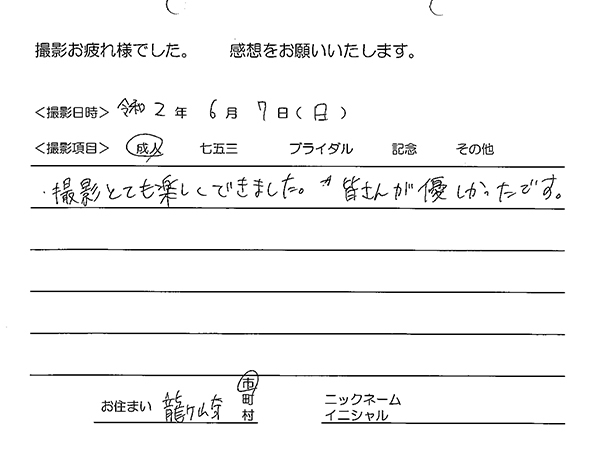 撮影お疲れ様でした。 感想をお願いいたします。
<撮影日時> 令和2年 6月 7日(日)
<撮影項目> 成人 七五三 ブライダル 記念 その他
・撮影とても楽しくできました。皆さんが優しかったです。
お住まい 龍ヶ崎 市 町 村 ニックネーム イニシャル